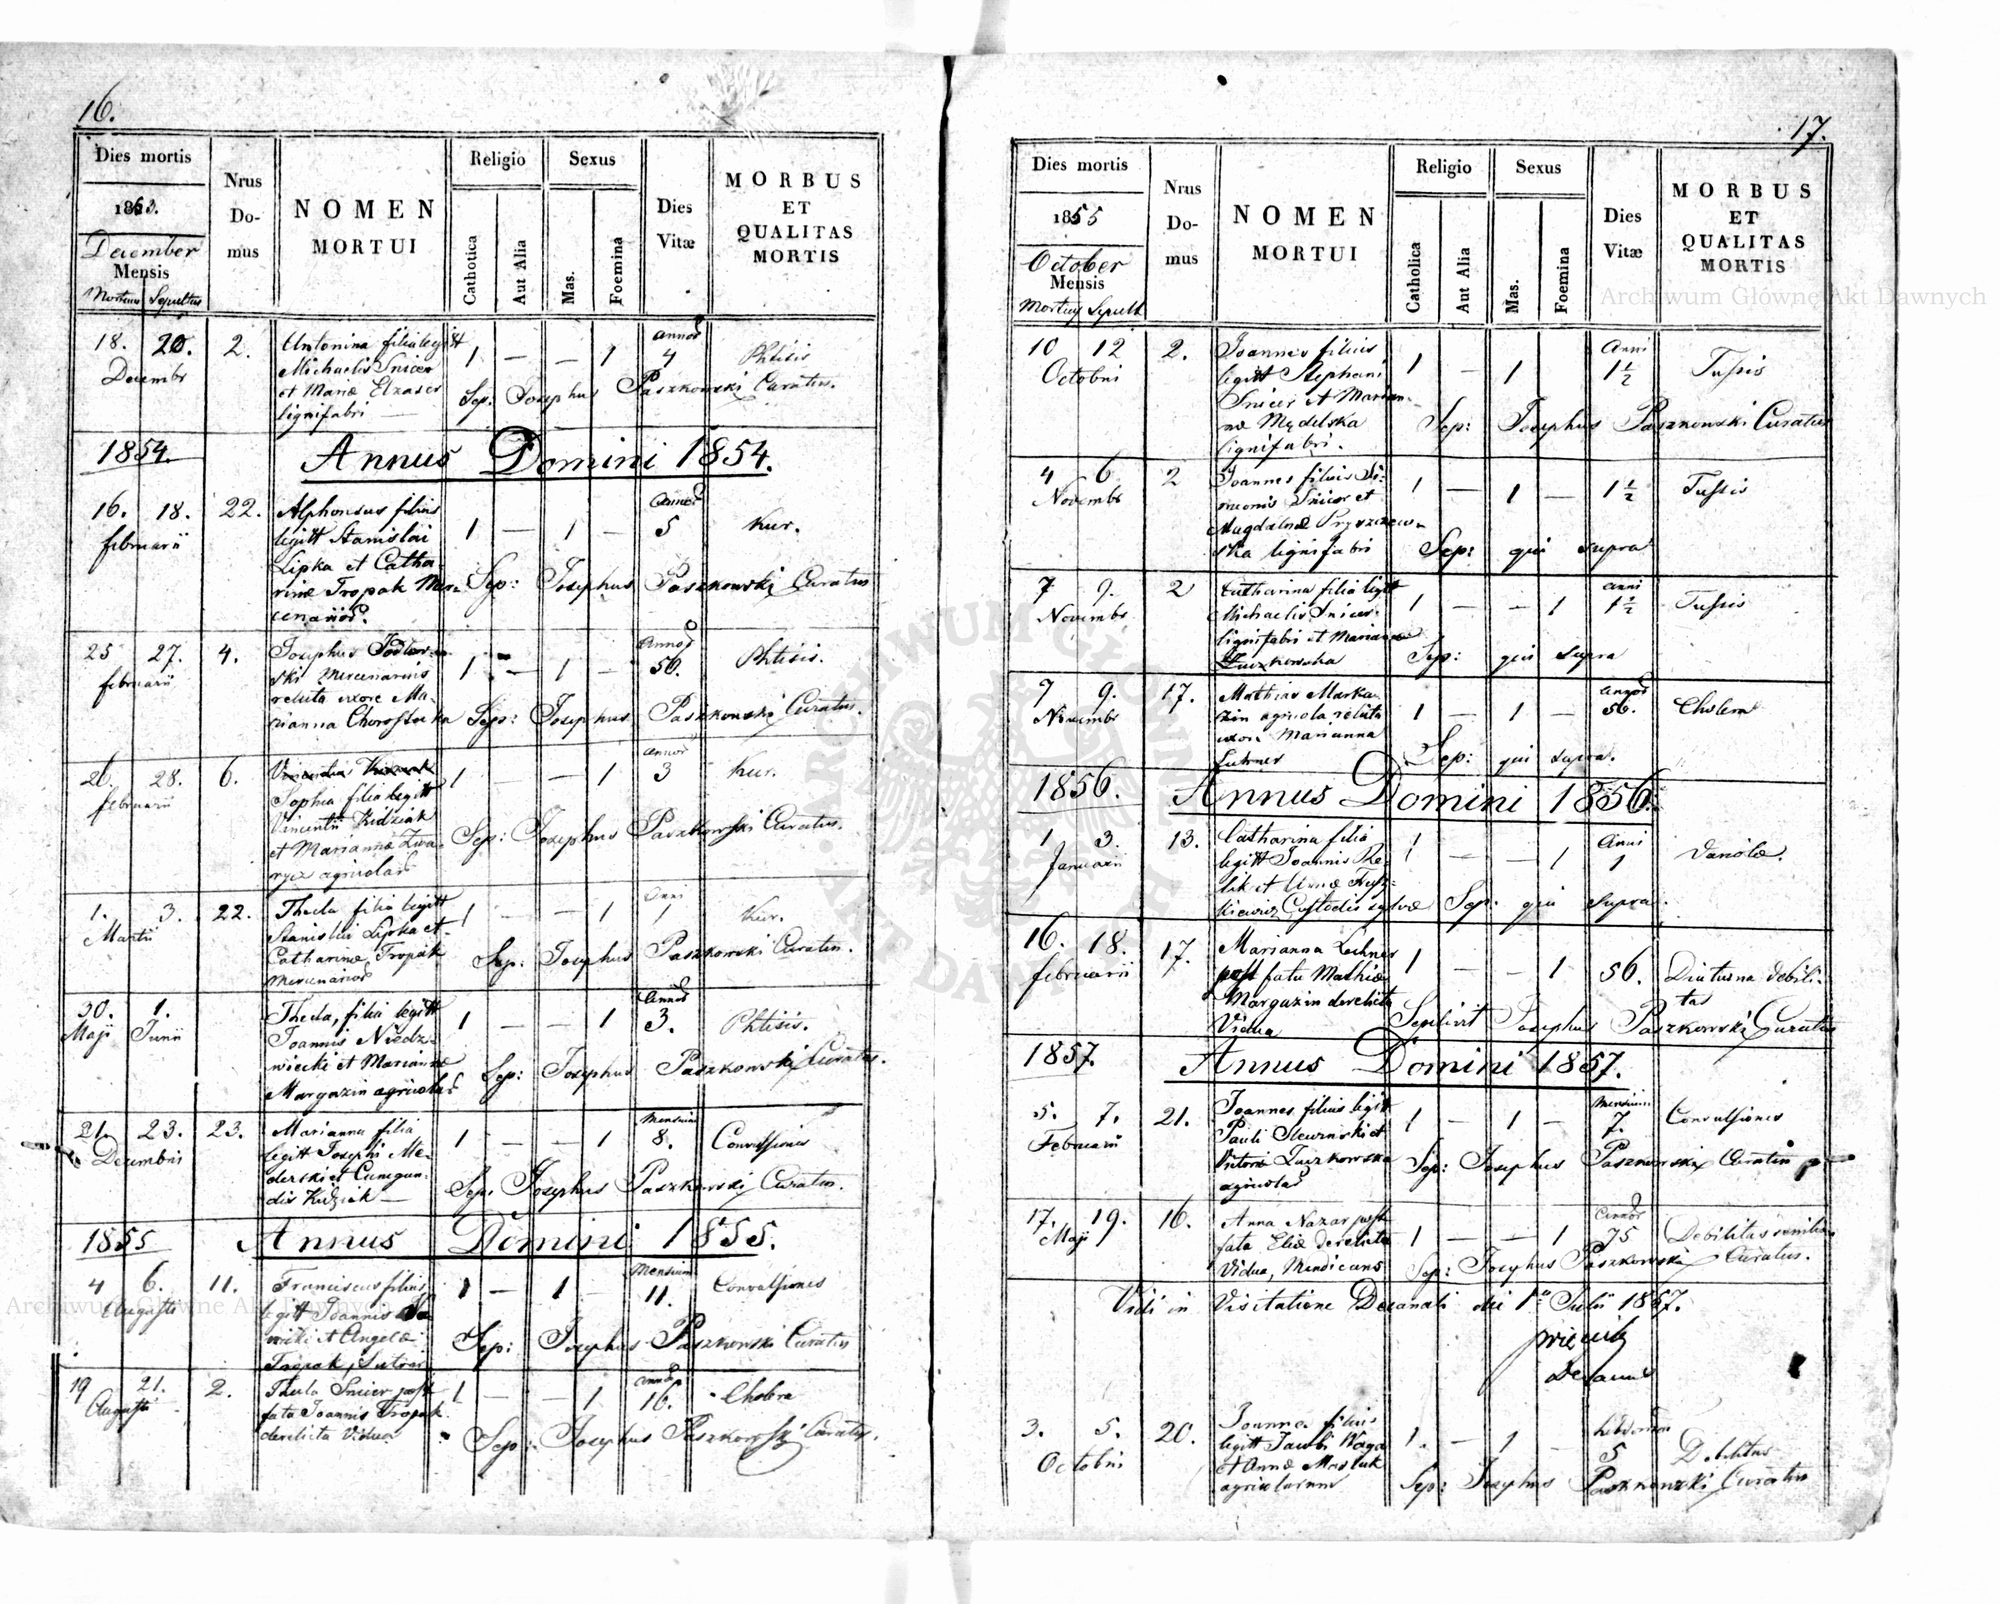 16.
Dies mortis
1853.
December
Mensis
Mortuus Sepultus
Nrus
Do-
mus
NOMEN
MORTUI
Religio
Catholica
Aut Alia
Sexus
Mas.
Foemina
Dies
Vitæ
MORBUS
ET
QUALITAS
MORTIS
18. 20. 2. Antonina filia legitt 1 — — 1 annor 4 Phtisis
Decembr Michaelis Snicer
et Mariæ Elzaser Sep: Josephus Paszkowski Curatus.
lignifabri —
1854. Annus Domini 1854.
16. 18. 22. Alphonsus filius 1 — 1 — annor 5 Kur.
februarii legitt Stanislai
Lipka et Catha-
rinæ Tropak Mer- Sep: Josephus Paszkowski Curatus
cenarior.
25 27. 4. Josephus 1 — 1 — annor 50. Phtisis.
februarii ski Mercenarius
relicta uxore Ma-
rianna Sep: Josephus Paszkowski Curatus.
26. 28. 6. 1 — — 1 annor 3 Kur.
februarii Sophia filia legitt
Vincentii Kidziak
et Mariannæ Sep: Josephus Paszkowski Curatus.
agricolar
1. 3. 22. Thecla filia legitt 1 — — 1 anni 1 Kur.
Martii Stanislai Lipka et
Catharinæ Tropak Sep: Josephus Paszkowski Curatus.
Mercenarior
30. 1. Thecla, filia legitt 1 — — 1 annor 3. Phtisis.
Maji Junii Joannis Niedz-
wiecki et Mariannæ Sep: Josephus Paszkowski Curatus.
Margazin agricolar
21. 23. 23. Marianna filia 1 — — 1 Mensium 8. Convulsiones
Decembris legitt Josephi Me-
derski et Cunegun- Sep: Josephus Paszkowski Curatus.
dis Kidziak —
1855 Annus Domini 1855.
4 6. 11. Franciscus filius 1 — 1 — Mensium 11. Convulsiones
Augusti legitt Joannis
et Angelæ Sep: Josephus Paszkowski Curatus
Tropak, Sutori
19 21. 2. Thecla Snicer post 1 — — 1 annor 16. Cholera
Augusti fata Joannis Tropak
derelicta Vidua Sep: Josephus Paszkowski Curatus.
17.
Dies mortis
1855
October
Mensis
Mortuus Sepult
Nrus
Do-
mus
NOMEN
MORTUI
Religio
Catholica
Aut Alia
Sexus
Mas.
Foemina
Dies
Vitæ
MORBUS
ET
QUALITAS
MORTIS
10 12 2. Joannes filius 1 — 1 Anni 1½ Tussis
Octobri legitt Stephani
Snicer et Marian-
næ Mędelska Sep: Josephus Paszkowski Curatus
lignifabri.
4 6 2 Joannes filius Si- 1 — 1 — 1½ Tussis
Novembr meonis Snicer et
Magdalenæ
ska lignifabri Sep: qui supra
7 9. 2 Catharina filia legitt 1 — — 1 anni 1½ Tussis
Novembr Michaelis Snicer
lignifabri et Mariannæ Sep: qui supra
Luczkowska
7 9. 17. Mathias Marka- 1 — 1 — annor 56. Cholera
Novembr zin agricola relicta
uxore Marianna Sep: qui supra.
Lechner
1856. Annus Domini 1856.
1 3. 13. Catharina filia 1 — — 1 Anni 1 Variolæ.
Januarii legitt Joannis
et Annæ
Custodis sylvæ Sep: qui supra.
16. 18. 17. Marianna Lechner 1 — — 1 56. Diuturna debili-
februarii post fata Mathiæ tas
Margazin derelicta Sepelivit Josephus Paszkowski Curatus
Vidua
1857. Annus Domini 1857.
5. 7. 21. Joannes filius legitt 1 — 1 — Mensium 7. Convulsiones
Februarii Pauli et
Luczkowska Sep: Josephus Paszkowski Curatus
agricolar
17. 19. 16. Anna Nazar post 1 — — 1 annor 75 Debilitas senilis
Maji fata Eliæ derelicta
Vidua, Mendicans Sep: Josephus Paszkowski Curatus.
Vidi in Visitatione Decanali die 1a Julii 1857.
Decanus
3. 5. 20. Joannes filius 1. — 1 — hebdomadum 5 Debilitas
Octobris legitt Jacobi Waga
et Annæ
agricolarum Sep: Josephus Paszkowski Curatus
Archiwum Główne Akt Dawnych
Archiwum Główne Akt Dawnych
ARCHIWUM GŁÓWNE AKT DAWNYCH